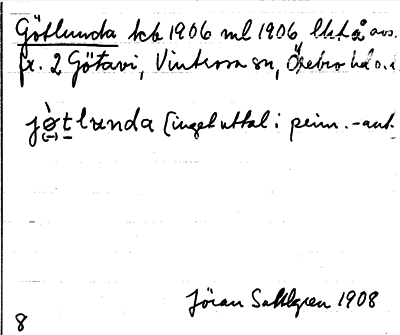 Götlunda kcb 1906 ml 1906 lkt å avs.
fr. 2 Götavi, Vintrosa sn, Örebro hd o.
jøtlunda (inget uttal i peim. -ant.
Jöran Sahlgren 1908
8